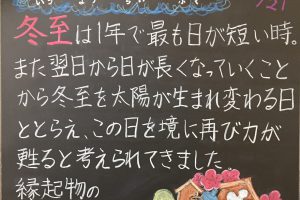 12/21
冬至は1年で最も日が短い時。
また翌日から日が長くなっていくこと
から冬至を太陽が生まれ変わる日
ととらえ、この日を境に再び力が
甦ると考えられてきました
縁起物の